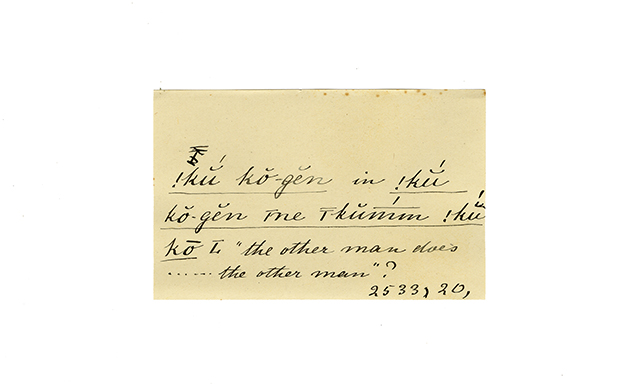 !kŭ́ kŏ-gĕn in !kŭ́
kŏ-gĕn ͞ne ͞kŭm̄́m !kŭ́
kō "the other man does
...... the other man"?
2533, 20,